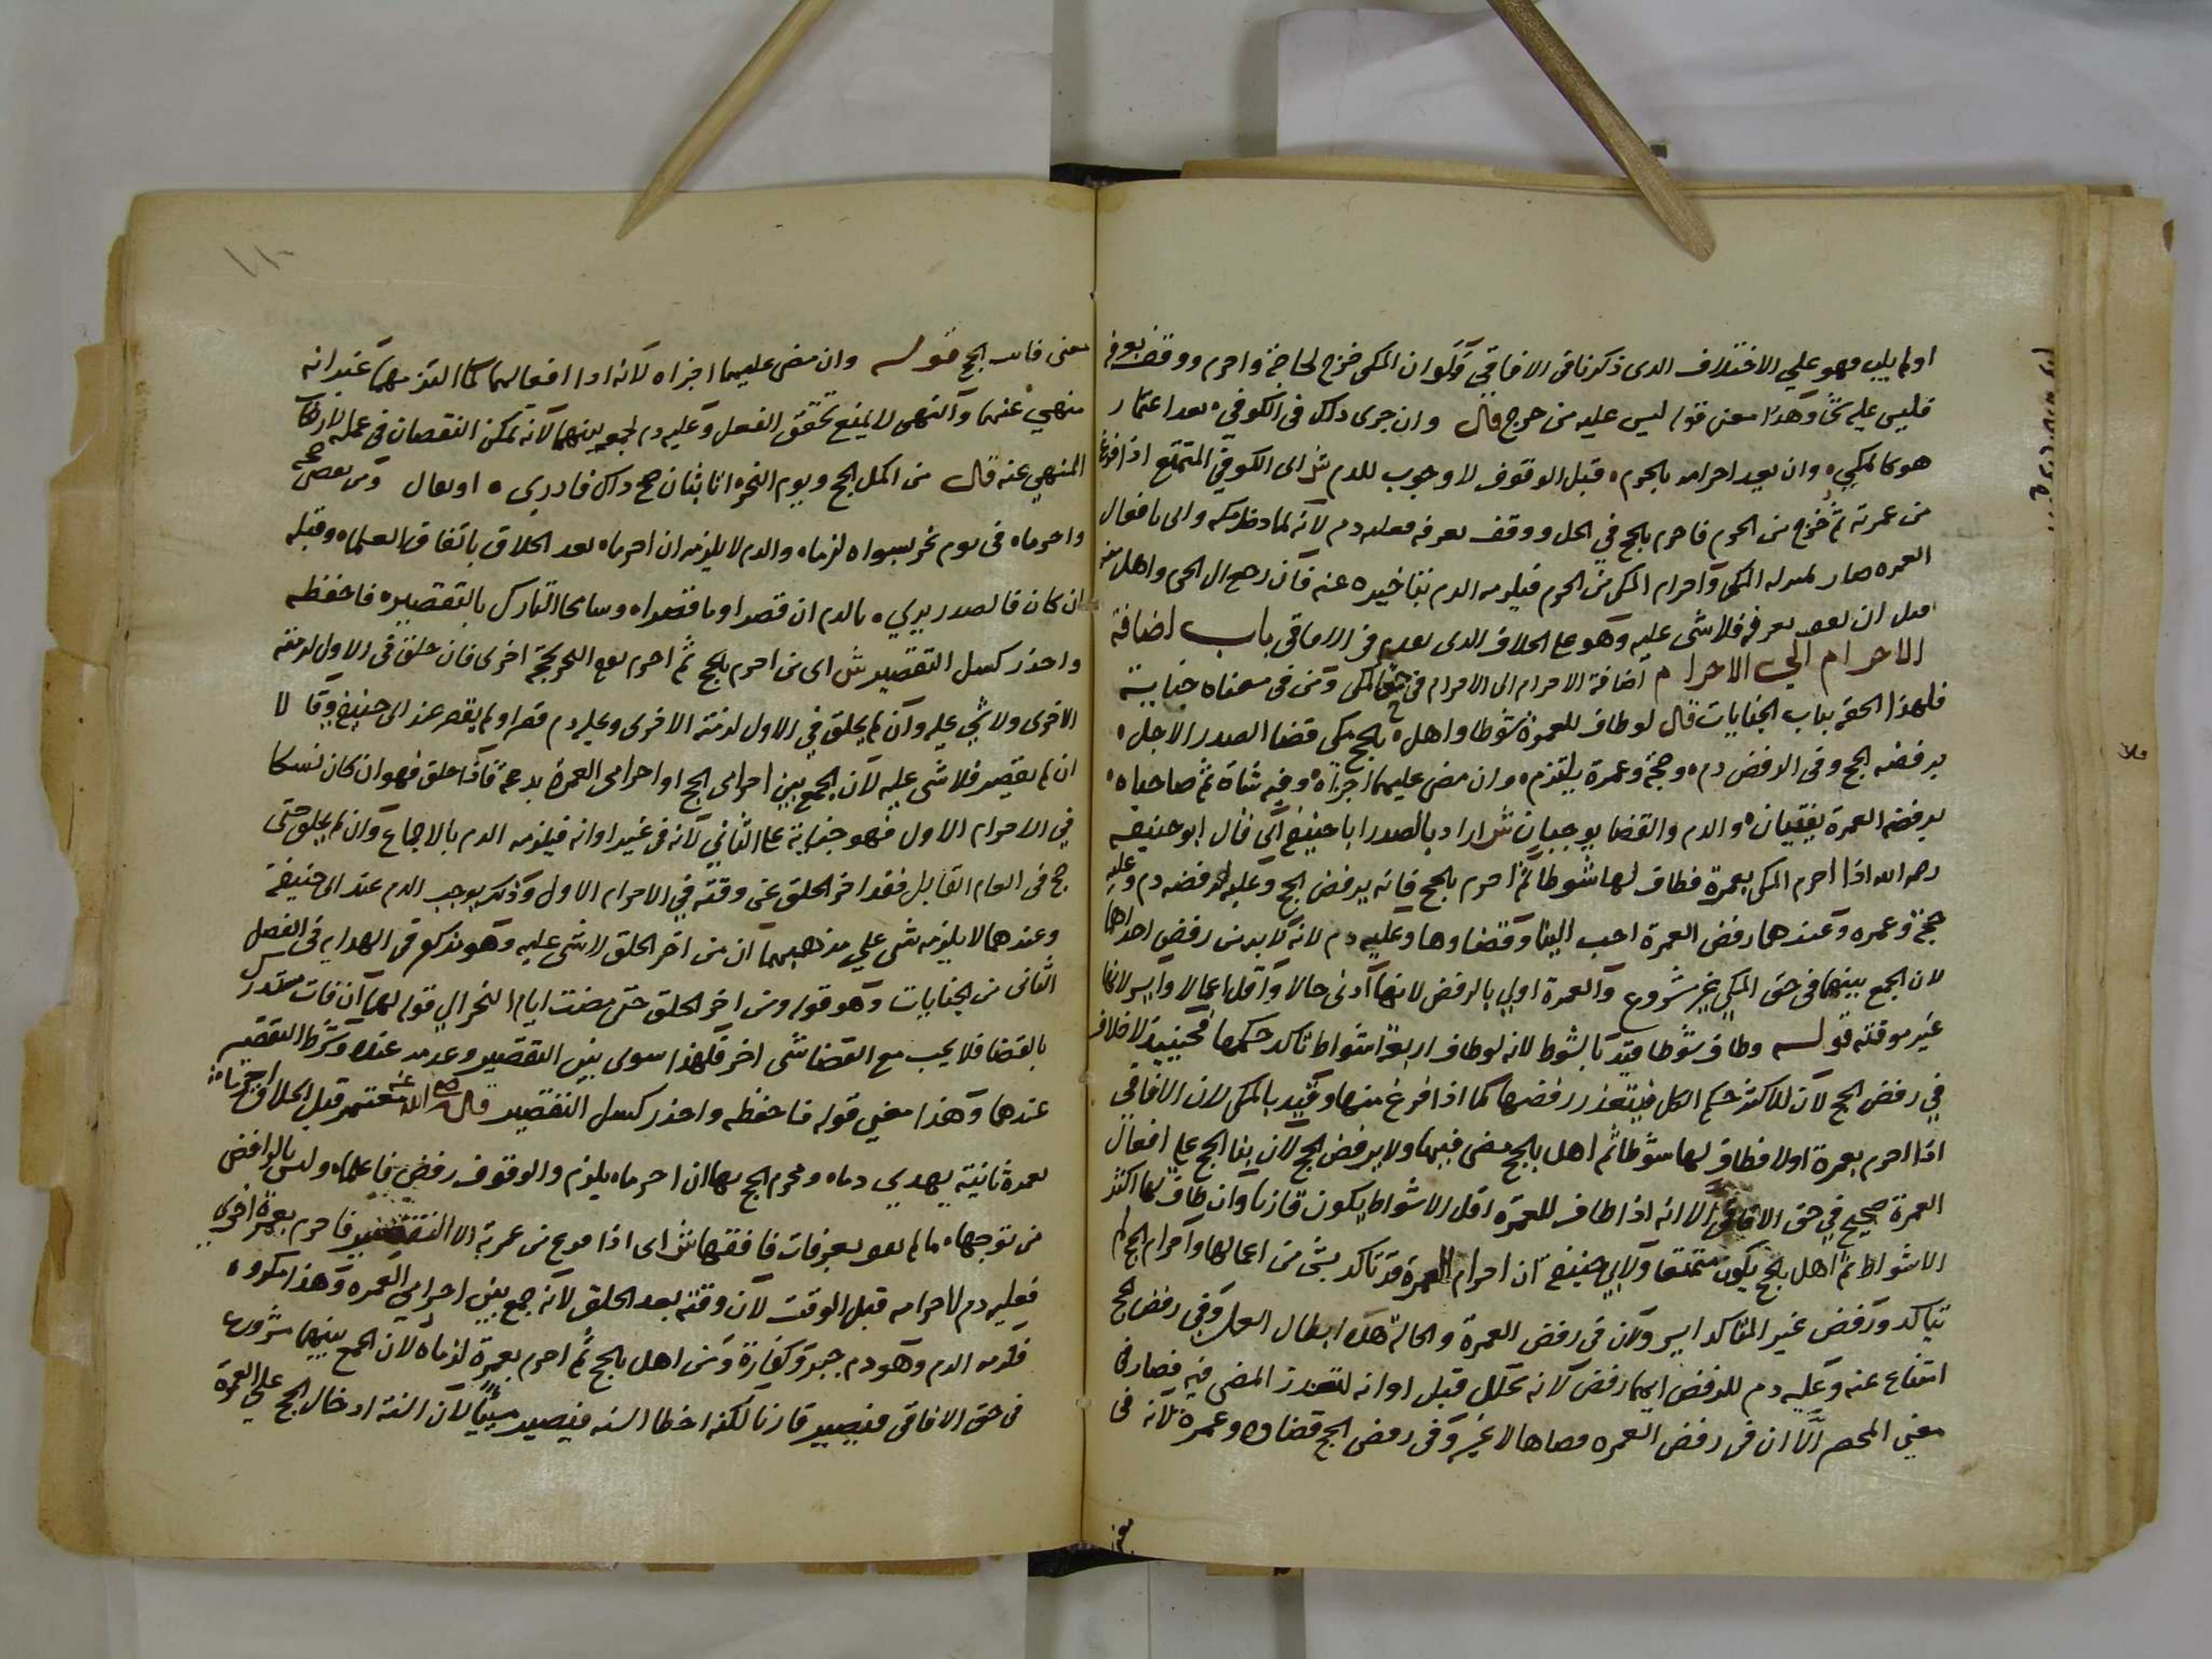 اولم يلب فهو علي الاختلاف الدى ذكرنا فى الافاقي وَلَو ان المكى خرج لحاجة واحرم ووقف بعرفه
فليس عليه شئ وهَذا معنى قوله ليس عليه من حرج قال وان جرى ذلك فى الكوفي ه بعد اعتمار
هو كالمكي ه وان يعد احرامه بالحرم ه قبل الوقوف لا وجوب للدم ش اى الكوفي المتمتع اذا فرغ
من عمرته ثم خرج من الحرم فاحرم بالحج في الحل ووقف بعرفه فعليه دم لانه لما دخل مكه واتى بافعال
العمره صار بمنزله المكى واحرام المكى من الحرم فيلزمه الدم بتاخيره عنه فان رجع الى الحرم واهل منه
قبل ان يقف بعرفه فلا شى عليه وهو على الخلاف الدى تقدم فى الافاقى باب اضافة
الاحرام الي الاحرام اضافة الاحرام الى الاحرام فى حق المكى ومن فى معناه جناية
فلهذا الحقه بباب الجنايات قال لو طاف للعمرة شوطا واهل ه بالحج مكى قضا الصدر الاجل ه
يرفضه الحج وفى الرفض دم ه وحجة وعمرة يلتزم ه وان مضى عليهما اجزاه ه وفيه شاة ثم صاحباه ه
يرفضه العمرة يفتيان ه والدم والقضا يوجبان ش اراد بالصدر ابا حنيفة اى قال ابو حنيفه
رحمه الله اذا احرم المكى بعمرة فطاف لها شوطا ثم احرم بالحج فانه يرفض الحج وعليه لرفضه دم وعليه
حجة وعمره وعندهما رفض العمرة احب الينا وقضاوها وعليه دم لانه لا بد من رفض احداهما
لان الجمع بينهما فى حق المكي غير مشروع والعمرة اولي بالرفض لانها ادنى حالا واقل اعمالا وايسر لانها
غير موقته قوله وطاف شوطا قيد بالشوط لانه لو طاف اربعة اشواط تاكد حكمها فحينيذ لا خلاف
في رفض الحج لان للاكثر حكم الكل فيتعذر رفضها كما اذا فرغ منها وقيد بالمكى لان الافاقي
اذا احرم بعمرة اولا فطاف لها شوطا ثم اهل بالحج مضى فيهما ولا يرفض الحج لان بنا الحج على افعال
العمرة صحيح في حق الافاقي الا انه اذا طاف للعمرة اقل الاشواط يكون قارنا وان طاف لها اكثر
الاشواط ثم اهل بالحج يكون متمتعا ولابي حنيفة ان احرام العمرة قد تاكد بشى من اعمالها واحرام الحج لم
يتاكد ورفض غير المتاكد ايسر ولان فى رفض العمرة والحالة هذه ابطال العمل وفى رفض الحج
امتناع عنه وعليه دم للرفض ايهما رفض لانه تحلل قبل اوانه لتعذر المضى فيه فصار فى
معنى المحصر الا ان فى رفض العمره قضاها لا غير وفى رفض الحج قضاوه وعمرة لانه فى
معنى
معنى فايت الحج قوله وان مضى عليهما اجزاه لانه ادا افعالهما كما التزمهما غير انه
منهي عنهما والنهى لا يمنع تحقق الفعل وعليه دم لجمعه بينهما لانه تمكن النقصان فى عمله لارتكاب
المنهي عنه قال من اكمل الحج ويوم النحر ه انا بثان صح ذاك فادري ه
واحرماه فى يوم نحر بسواه لزماه والدم لا يلزمه ان احرماه بعد الحلاق باتفاق العلماه وقبله
ان كان فالصدر يري ه بالدم ان قصرا وما قصراه وسامحا التارك بالتقصيره فاحفظه
واحذر كسل التقصير ش اى من احرم بالحج ثم احرم يوم النحر بحجة اخرى فان حلق فى الاول لزمته
الاخرى ولا شي عليه وان لم يحلق في الاول لزمته الاخرى وعليه دم قصر او لم يقصر عند ابى حنيفة وقالا
ان لم يقصر فلا شى عليه لان الجمع بين احرامى الحج او احرامى العمرة بدعة فاذا حلق فهو ان كان نسكا
في الاحرام الاول فهو جناية على الثاني لانه فى غير اوانه فيلزمه الدم بالاجماع وان لم يحلق حتى
حج فى العام القابل فقد اخر الحلق عن وقته في الاحرام الاول وذلك يوجب الدم عند ابى حنيفة
وعندهما لا يلزمه شى علي مذهبهما ان من اخر الحلق لا شى عليه وهو مذكور فى الهدايه فى الفصل
الثانى من الجنايات وهو قوله ومن اخر الحلق حتى مضت ايام النحر الي قوله لهما ان فات مستدرك
بالقضا فلا يجب مع القضا شى اخر فلهذا سوى بين التقصير وعدمه عنده وشرط التقصير
عندهما وهذا معني قوله فاحفظه واحذر كسل التقصير قال رضي الله عنه معتمر قبل الحلاق احرماه
بعمرة ثانية يهدي دماه ومحرم الحج بها ان احرماه يلزم والوقوف رفض فاعلماه وليس بالرافض
من توجهاه ما لم يقف بعرفات فافقها ش اى اذا فرغ من عمرته الا التقصير فاحرم بعمرة اخرى
فعليه دم لاحرامه قبل الوقت لان وقته بعد الحلق لانه جمع بين احرامي العمره وهذا مكروه
فلزمه الدم وهو دم جبر وكفارة ومن اهل بالحج ثم احرم بعمرة لزماه لان الجمع بينهما مشروع
فى حق الافاقى فيصير قارنا لكنه اخطا السنه فيصير مسيئا لان السنة ادخال الحج على العمرة